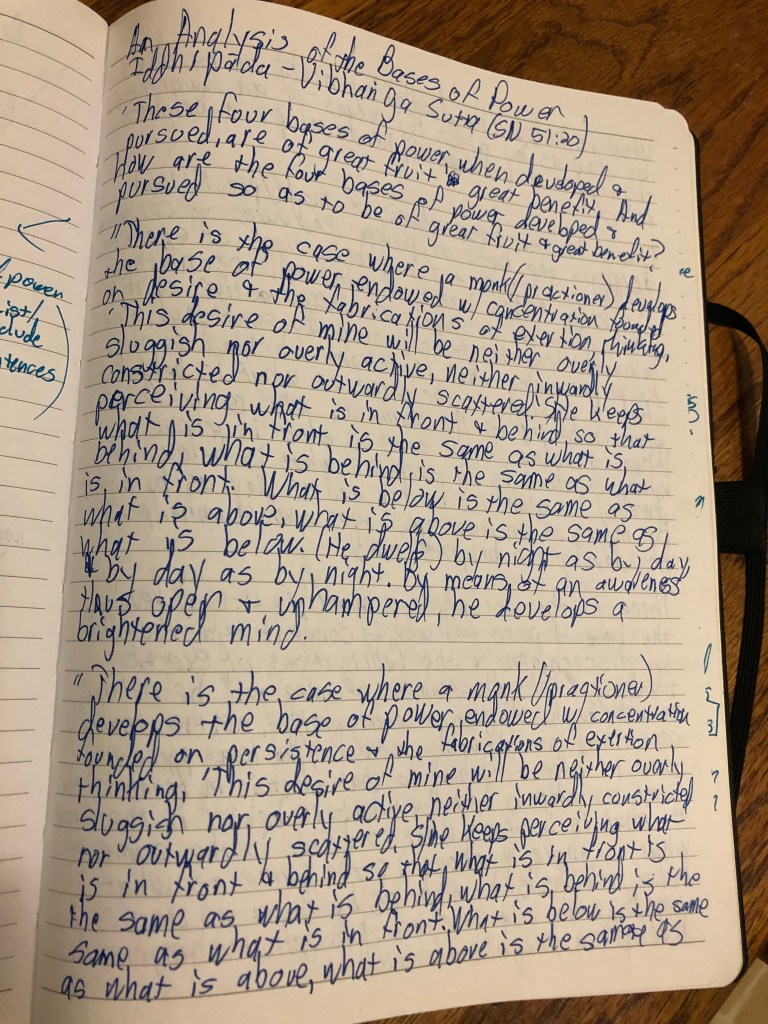 An Analysis of the Bases of Power
Iddhipada-Vibhanga Sutta (SN 51:20)
'These four bases of power, when developed &
pursued, are of great fruit & great benefit. And
How are the four bases of power developed &
pursued so as to be of great fruit & great benefit?
"There is the case where a monk (/practioner) develops
the base of power endowed w/ concentration founded
on desire & the fabrications of exertion thinking,
'This desire of mine will be neither overly
sluggish nor overly active, neither inwardly
constricted nor outwardly scattered. S/he keeps
perceiving what is in front & behind so that
what is in front is the same as what is
behind, what is behind is the same as what
is in front. What is below is the same as
what is above, what is above is the same as
what is below. (He dwells) by night as by day,
& by day as by night. By means of an awareness
thus open & unhampered, he develops a
brightened mind.
"There is the case where a monk (/pragtioner)
develops the base of power endowed w/ concentration
founded on persistence & the fabrications of exertion
thinking, 'This desire of mine will be neither overly
sluggish nor overly active, neither inwardly constricted
nor outwardly scattered. S/he keeps perceiving what
is in front & behind so that what is in front is
the same as what is behind, what is behind is the
same as what is in front. What is below is the same
as what is above, what is above is the same as
power
ist/
clude
tences)